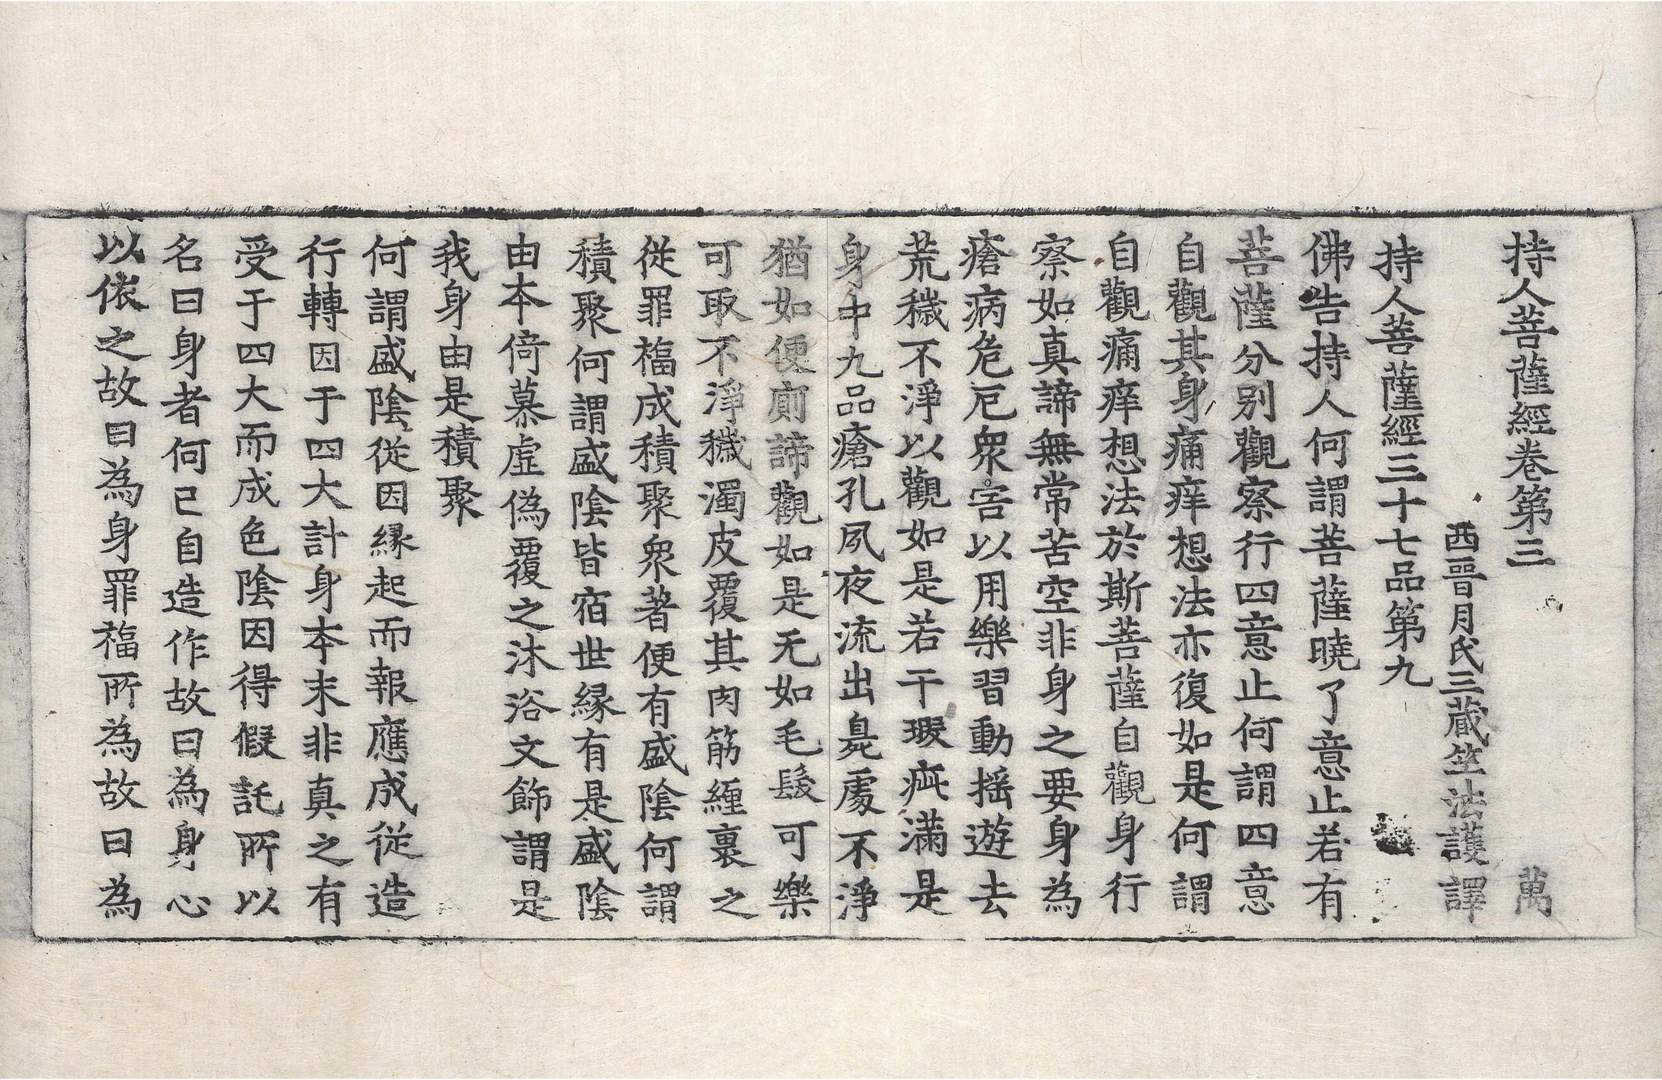 持人菩薩經卷第三 萬
西晉月氏三藏竺法護譯
持人菩薩經三十七品第九
佛告持人何謂菩薩曉了意止若有
菩薩分別觀察行四意止何謂四意
自觀其身痛痒想法亦復如是何謂
自觀痛痒想法於斯菩薩自觀身行
察如真諦無常苦空非身之要身為
瘡病危厄衆害以用樂習動揺遊去
荒穢不淨以觀如是若干瑕疵满是
身中九品瘡孔夙夜流出臰處不淨
猶如便廁諦觀如是无如毛髮可樂
可取不淨穢濁皮覆其肉筋纏裹之
從罪福成積聚衆著便有盛陰何謂
積聚何謂盛陰皆宿世縁有是盛陰
由本倚慕虛偽覆之沐浴文飾謂是
我身由是積聚
何謂盛陰從因縁起而報應成從造
行轉因于四大計身本末非真之有
受于四大而成色陰因得假託所以
名曰身者何已自造作故曰為身心
以依之故曰為身罪福所為故曰為